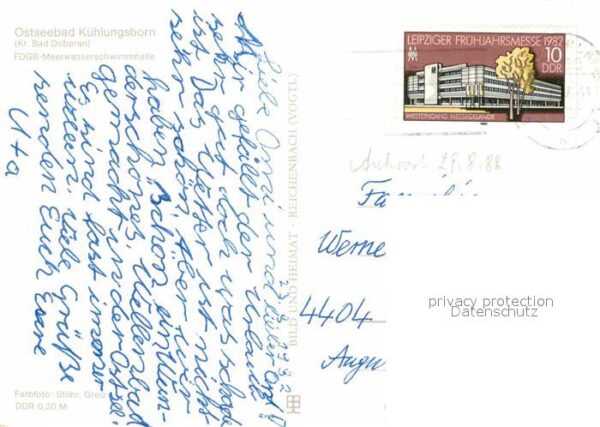 Ostseebad Kühlungsborn
(Kr. Bad Doberan)
FDGB-Meerwasserschwimmhalle
23.8.1982
Liebe Omi und lieber Opi!
Mir gefällt der Urlaub
sehr gut doch was schade
ist. Das Wetter ist nicht
sehr schön. Aber wir
haben schon ein Wun-
derschönes Wellenbad
gemacht in der Ostsee.
Es sind fast immer
Wellen. Viele Grüße
senden Euch Eure
Uta
Farbfoto: Stöhr, Greiz
DDR 0,20 M
BILD UND HEIMAT · REICHENBACH (VOGTL)
LEIPZIGER FRÜHJAHRSMESSE 1982
10
DDR
WESTEINGANG MESSEGELÄNDE
Antwort 29.8.82
Werne
4404
privacy protection
Datenschutz